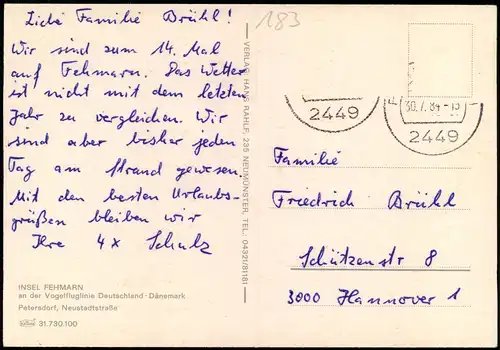 Liebe Familie Brühl!
Wir sind zum 14. Mal
auf Fehmarn. Das Wetter
ist nicht mit dem letzten
Jahr zu vergleichen. Wir
sind aber bisher jeden
Tag am Strand gewesen.
Mit den besten Urlaubs-
grüßen bleiben wir
Ihre 4x Schulz
INSEL FEHMARN
an der Vogelfluglinie Deutschland - Dänemark
Petersdorf, Neustadtstraße
31.730.100
VERLAG: HANS RAHLF, 235 NEUMÜNSTER, TEL.: 04321/81181
183
2449
30.7.84-15
2449
Familie
Friedrich Brühl
Schützenstr 8
3000 Hannover 1